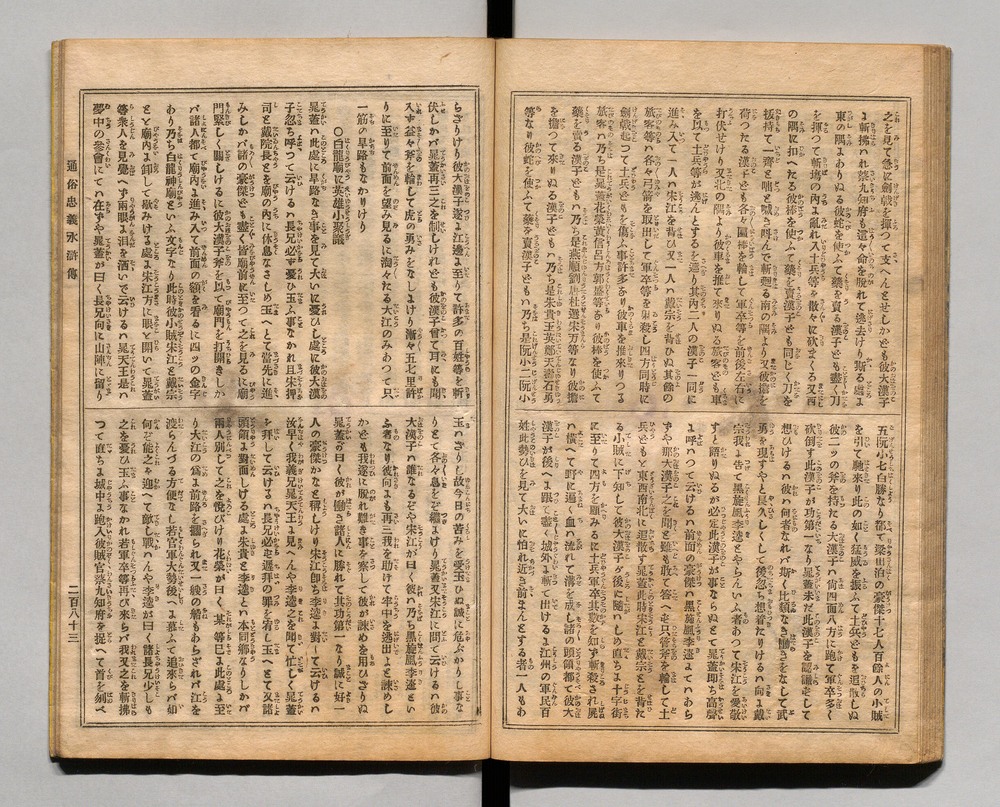 之を見て急に劍戟を揮つて支へんとせしかども彼大漢子
に斬拂はれ蔡九知府も還々命を脱れて逃去けり斯る處に
東の隅にありぬる彼蛇を使ふて藥を賣る漢子ども盡く刀
を揮つて斬塲の內に亂れ入土兵等を散々に砍まくる又西
の隅に扣へたる彼棒を使ふて藥を賣漢子ども同じく刀を
拔持て一齊と咄と喊き叫んで斬廻る南の隅より又彼擔を
荷つたる漢子ども各々匾棒を輪して軍卒等を前後左右に
打伏せけり又北の隅より彼車を推て來りぬる旅客ども車
を以て土兵等が逃んとするを遮り其內二人の漢子一同に
進み入て一人ハ宋江を背ひ又一人ハ戴宗を背ひぬ其餘の
旅客等ハ各々弓箭を取出して軍卒等を射殺し四方同時に
劍戟起つて土兵どもを傷ふ事許多なり彼車を推來りつる
旅客ハ乃ち是晁蓋花榮黃信呂方郭盛等なり彼棒を使ふて
藥を賣る漢子どもハ乃ち是燕順劉唐杜遷宋万等なり彼擔
を擔つて來りぬる漢子どもハ乃ち是朱貴王英鄭天壽石勇
等なり彼蛇を使ふて藥を賣漢子どもハ乃ち是阮小二阮小
五阮小七白勝なり都て梁山泊の豪傑十七人百餘人の小賊
を引て馳來り此の如く猛威を振ふて土兵どもを追散しぬ
彼二ツの斧を持たる大漢子ハ尙四面八方に跑て軍卒多く
砍倒す此漢子が功第一なり晁蓋未だ此漢子を認識ずして
想ひけるハ彼ハ何者なれバ斯く比類なき働きをなして武
勇を現すやと良久しくして後忽ち想着たりけるハ向に戴
宗我に告て黑旋風李逵とやらんいふ者あつて宋江を愛敬
すと語りぬるが必定此漢子が事ならぬとて晁蓋即ち高聲
に呼はつて云けるハ前面の豪傑ハ黑旋風李逵にてハあら
ずや那大漢子之を聞と雖も敢て答へず只管斧を輪して土
兵どもと東西南北に追散す晁蓋此時宋江と戴宗とを背た
る小賊に下知して彼大漢子が後に隨ハしめ直ちに十字街
に至りて四方を顧みるに土兵軍卒其數を知ず斬殺され屍
ハ橫へて野に遍く血ハ流れて溝を成し諸の頭領都て彼大
漢子が後へに跟て竈く城外に斬て出けるに江州の軍民百
姓此勢ひを見て大いに怕れ近き前まんとする者一人もあ
らざりけり彼大漢子遂に江邊に至りて許多の百姓等を斬
伏しかバ晁蓋再三之を制しけれども彼漢子曾て耳にも聞
入ず益々斧を輪して虎の勇みをなしにけり漸々五七里許
りに至りて前面を望み見るに洶々たる大江のみあつて只
一筋の旱路もなかりけり
○白龍廟に英雄小聚議
晁蓋ハ此處に旱路なき事を見て大いに憂ひし處に彼大漢
子忽ち呼つて云けるハ長兄必ず憂ひ玉ふ事なかれ且宋押
司と戴院長とを廟の內に休息なさしめ玉へとて當先に進
みしかバ諸の豪傑ども盡く皆廟前に至つて之を見るに廟
門緊しく關しけるに彼大漢子斧を以て廟門を打開きしか
バ諸人都て廟內に進み入て前面の額を看るに四ツの金字
あり乃ち白龍神廟といふ文字なり此時彼小賊宋江と戴宗
とと廟內に卸して歇みける處に宋江方に眼と開いて晁蓋
等衆人を見覺へず兩眼に泪を洒いで云けるハ晁天王是ハ
夢中の參會にてハ在ずや晁蓋が曰く長兄向に山陣に留り
玉ハざりし故今日の苦みを受玉ひぬ誠に危ふかりし事な
りとて各々息をぞ繼にけり晁蓋又宋江に問て云けるハ彼
大漢子ハ誰なるぞや宋江が曰く彼ハ乃ち黑旋風李逵とい
ふ者なり彼向にも再三我を助けて牢中を逃出よと諫めし
かども我遂に脫れ難き事を察して彼が諫めを用ひざりぬ
晁蓋が曰く彼が働き諸人に勝れて其功第一なり誠に好一
人の豪傑かなと稱しけり宋江卽ち李逵に對して云けるハ
汝早く我義兄晁天王に見へんや李逵之を聞て忙しく晁蓋
を拜して云けるハ長兄必ず遲拜の罪を宥し玉へとて又諸
頭領に對面しける處に朱貴と李逵とハ本同鄉なりしかバ
兩人別して之を悅びけり花榮が曰く某等已に此處に至
り大江の爲に前路を攔られ又一艘の船もあらざれバ江を
渡らんずる方便なし若官軍大勢後へに慕ふて追來らバ如
何ぞ能之を迎へて敵し戰ハんや李逵が曰く諸長兄少しも
之を憂ひ玉ふ事なかれ若軍卒等再び來らバ我又之を斬拂
つて直ちに城中に跑入彼賊官蔡九知府を捉へて首を刎べ
通俗忠義水滸傳
二百八十三